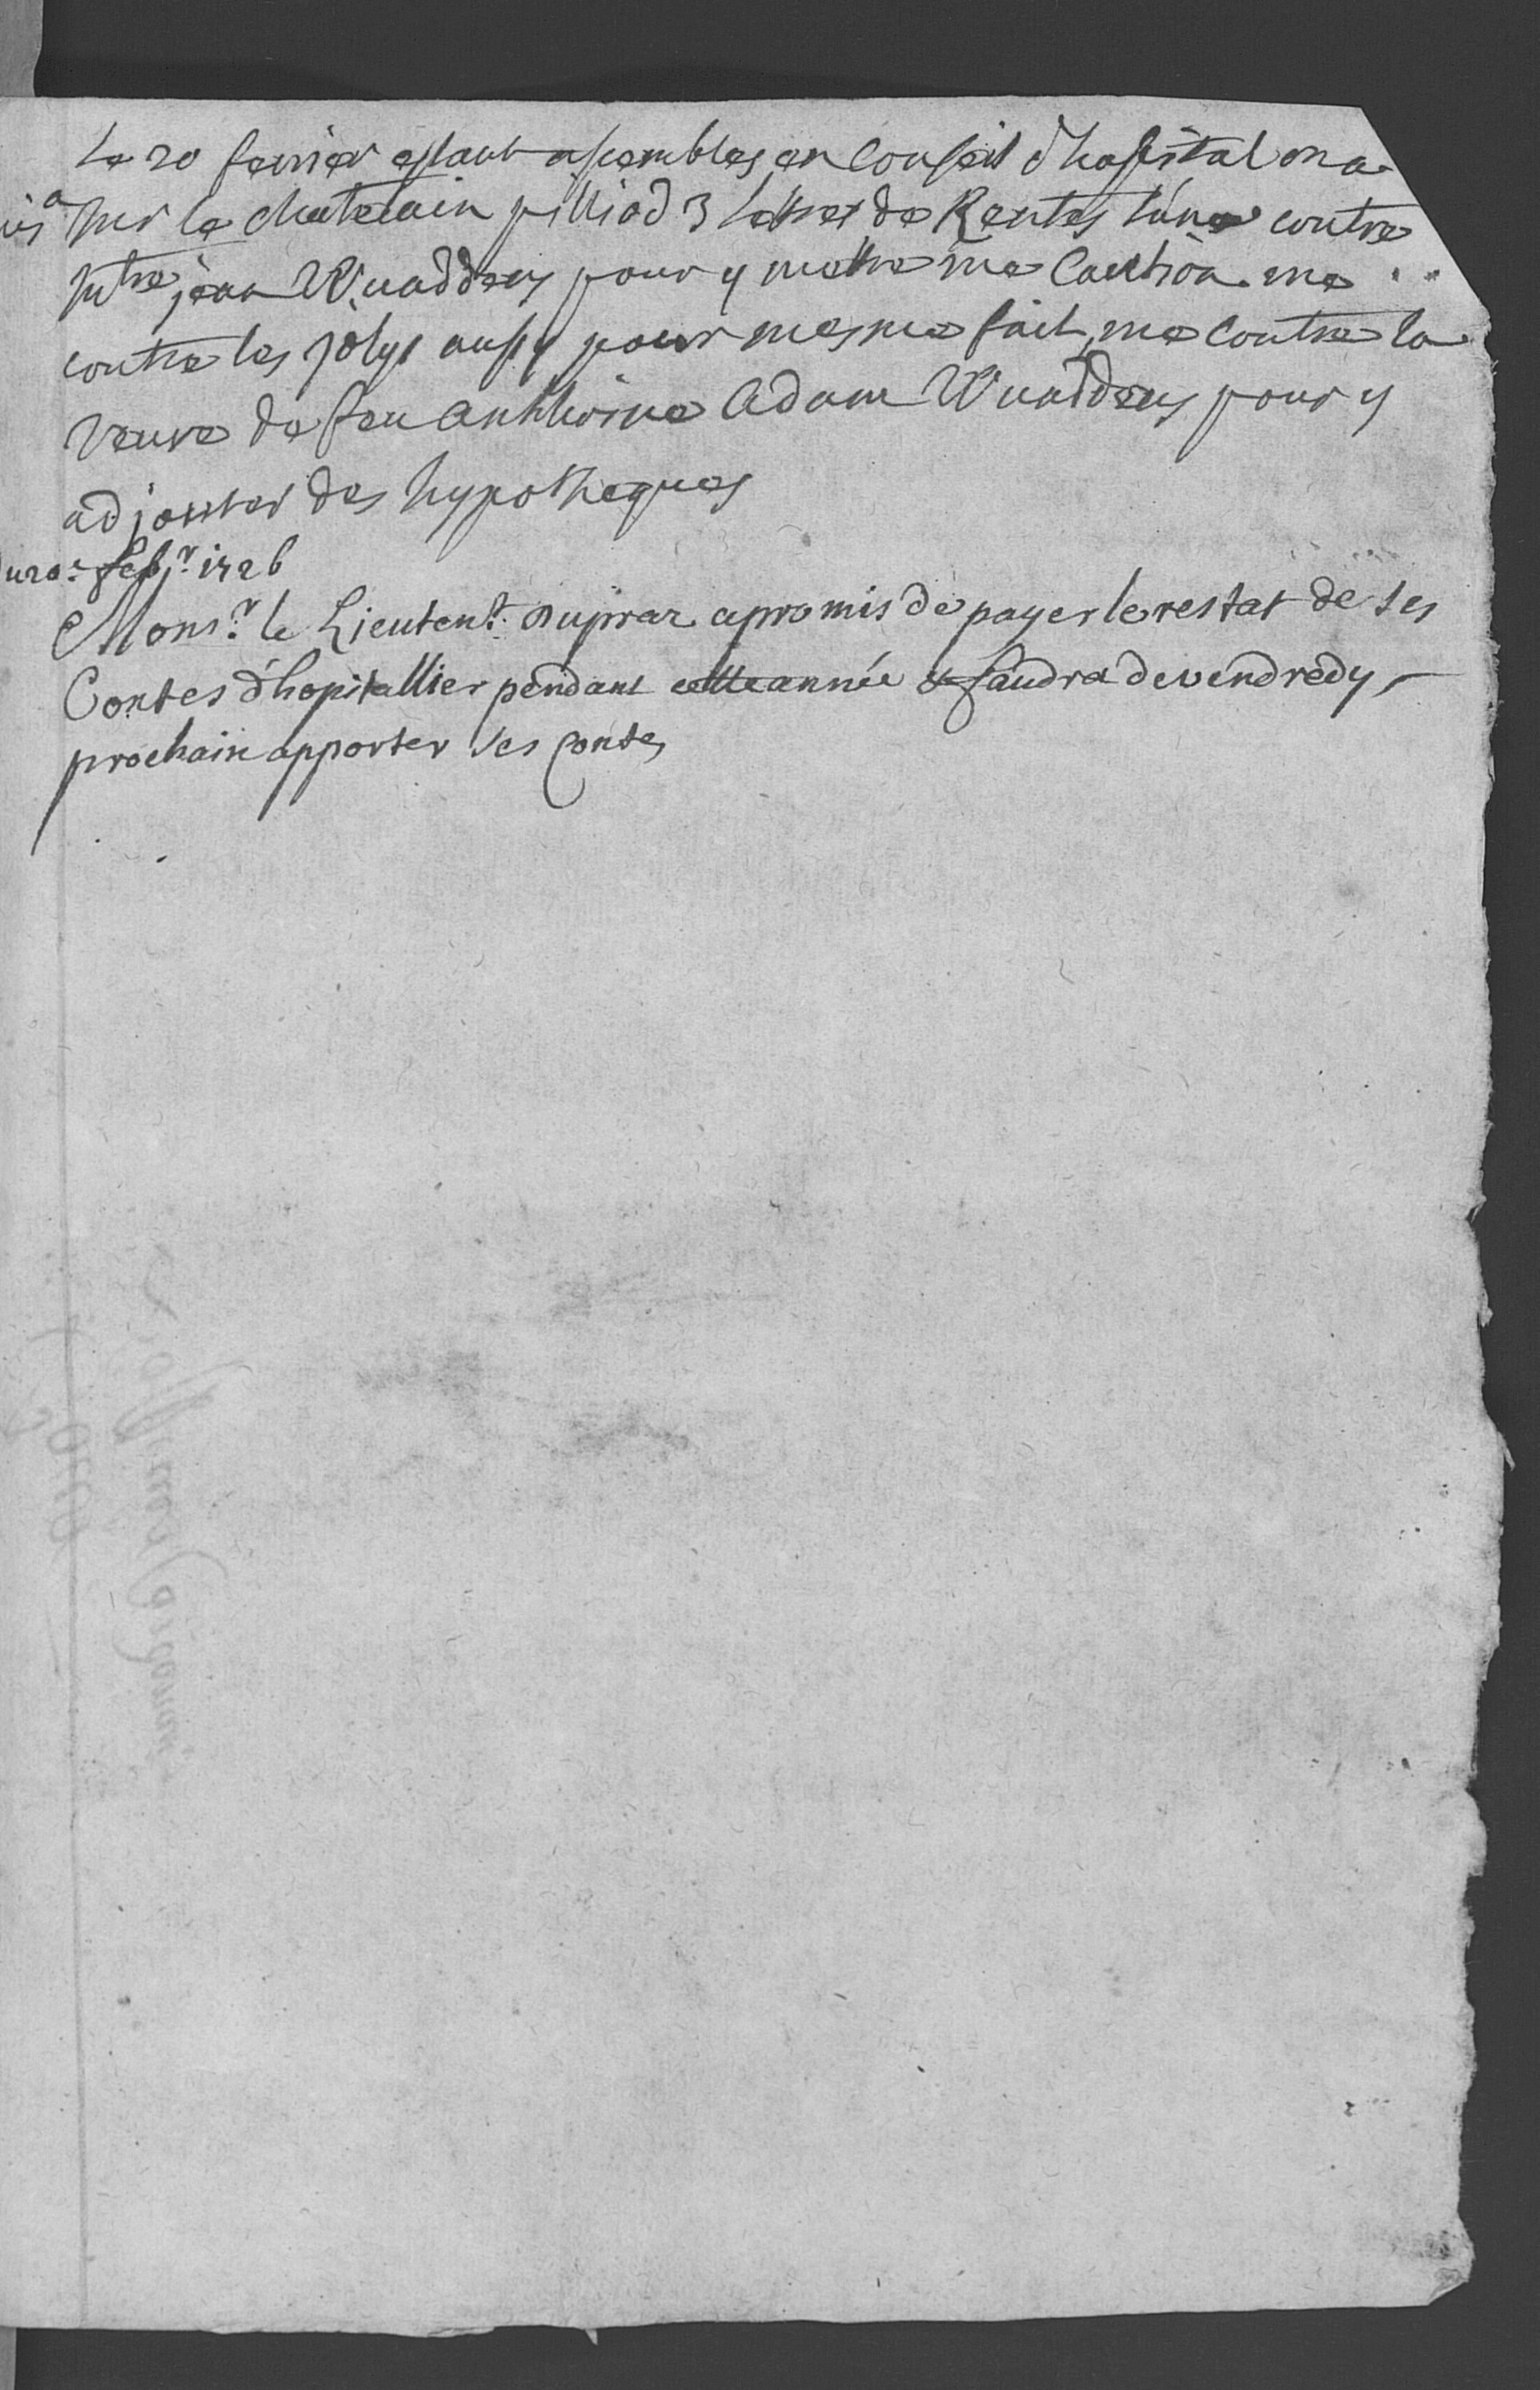 Le 20 fevrier estant assembles en Conseil d'hospital on a
a Mr le chatelain pilliod 3 lettres de Rentes l'une contre
jean Wuaddens pour y mettre une Caution. une
contre les jolys aussy pour mesme fait, une contre la
veuve de feu anthoine adam Wuaddens pour y
adjouter des hypotheques
du 20e febr. 1726
Monsr. le Lieutent. Duprar a promis de payer le restat de ses
Contes d'hopitallier pendant cette année & faudra de vendredy
prochain apporter ses Contes